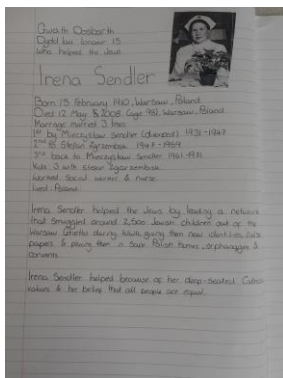 Gwaith Dosbarth
Dydd Iau Ionawr 15
Who helped the Jews
Irena Sendler
Born: 15 February 1910, Warsaw, Poland
Died: 12 May 2008 (age 98), Warsaw, Poland
Marriage: married 3 times
1st by Mieczyslaw Sendler (divorced) 1931-1947
2nd Stefan Zgrzembski 1947-1959
3rd back to Mieczyslaw Sendler 1961-1971
Kids: 3 with Stefan Zgrzembski
Worked: Social worker & nurse
Lived: Poland
Irena Sendler helped the Jews by leading a network
that smuggled around 2,500 Jewish children out of the
Warsaw Ghetto during WWII, giving them new identities, false
papers & placing them in safe Polish homes, orphanages &
convents
Irena Sendler helped because of her deep-seated Catholic
values & her belief that all people are equal.